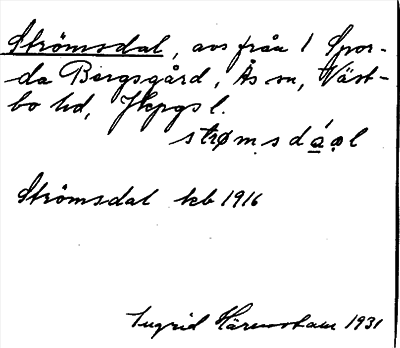 Strömsdal, avs från 1 Spor-
da Bergsgård, Ås sn, Väst-
bo hd, Jkpgs l.
strømsdáal
Strömsdal kb 1916
Ingrid 1931